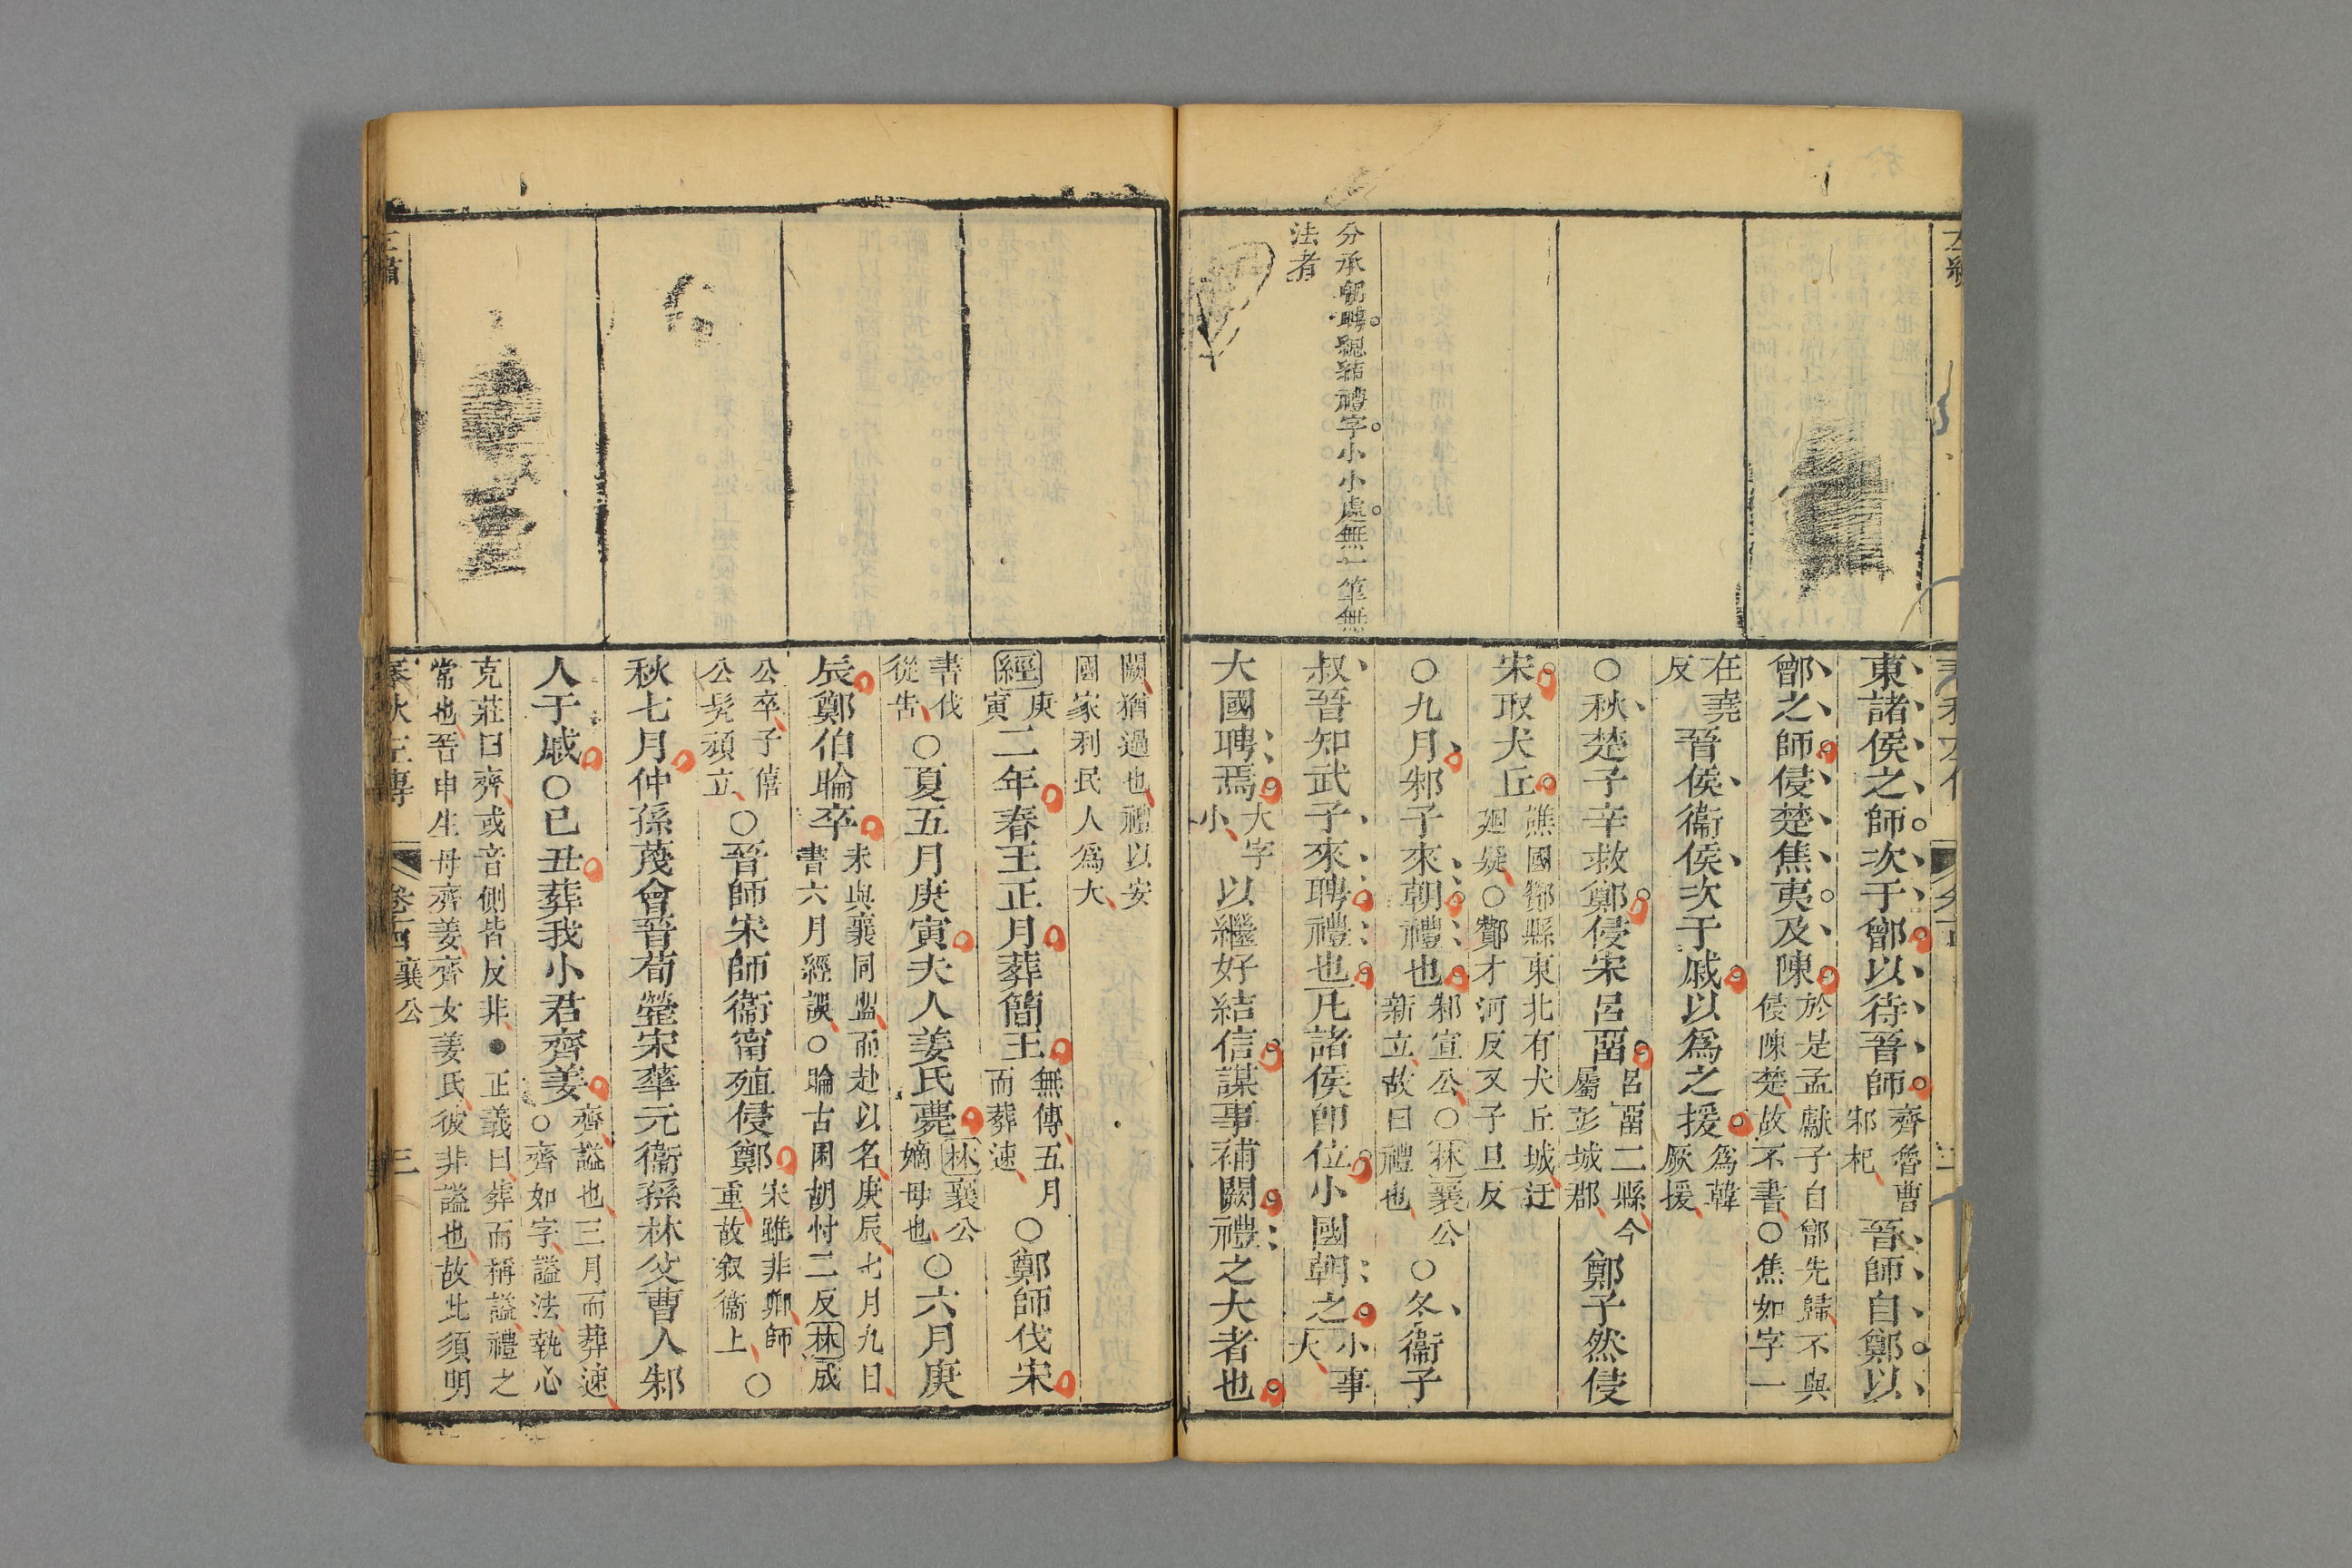 分承朝聘。覲結禮字。小小處。無一筆無
法者
東諸侯之師。次于鄫。以待晉師。齊魯曹邾杞、晉師自鄭。以
鄫之師。侵楚焦夷。及陳。於是孟獻子自鄫先歸、不與侵陳楚、故不書、○焦如字一
在堯反晉侯衞侯次于戚。以爲之援。爲韓厥援、
○秋楚子辛救鄭。侵宋呂畱。呂畱二縣、今屬彭城郡、鄭子然侵
宋。取犬丘。譙國酇縣東北有犬丘城、迂廻疑、○酇才河反又子旦反
○九月邾子來朝。禮也。邾宣公、○林襄公新立、故曰禮也、○冬衞子
叔晉知武子來聘。禮也。凡諸侯卽位。小國朝之。小事大、
大國聘焉。大字小、以繼好結信。謀事補闕。禮之大者也。
闕、猶過也、禮以安國家利民人爲大、
經庚寅二年春王正月葬簡王無傳、五月而葬速、○鄭師伐宋
書伐從告、○夏五月庚寅夫人姜氏薨林襄公嫡母也、○六月庚
辰鄭伯睔卒未與襄同盟、而赴以名、庚辰、七月九日、書六月經誤、○睔古困胡忖二反林成
公卒、子僖公髠頑立、○晉師宋師衞甯殖侵鄭宋雖非卿、師重、故叙衞上、○
秋七月仲孫蔑會晉荀罃宋華元衞孫林父曹人邾
人于戚○己丑葬我小君齊姜齊、謚也、三月而葬速、○齊如字、謚法、執心
克莊曰齊、或音側皆反非、●正義曰、葬而稱謚、禮之常也、晉申生母齊姜、齊女姜氏、彼非謚也、故此須明
卷十四 襄公
三